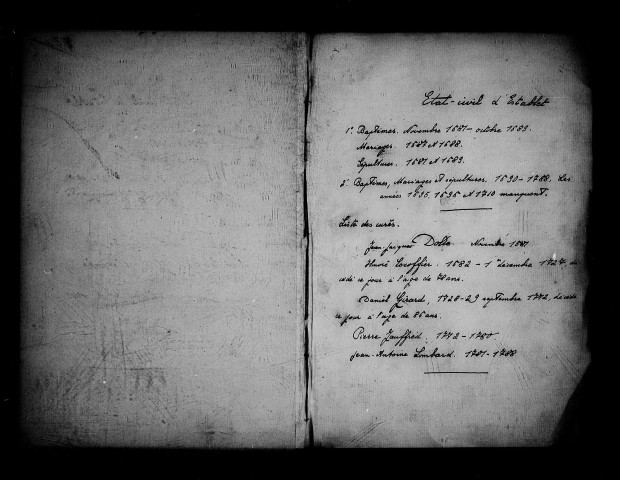 Etat-civil d'Establet
1º Baptêmes. Novembre 1681 - octobre 1689.
Mariages. 1687 et 1688.
Sépultures. 1681 et 1689.
2º Baptêmes, Mariages et sépultures. 1690 - 1788. Les
années 1695, 1696 et 1710 manquent.
Liste des curés.
Jean Jacques Dolle Novembre 1681
Henri Escoffier. 1682 - 1er décembre 1727, dé
cédé ce jour à l'age de 78 ans.
Daniel Girard, 1728 - 29 septembre 1742, décédé
ce jour à l'age de 86 ans.
Pierre Jauffred. 1742 - 1780.
Jean-Antoine Lombard. 1781 - 1788